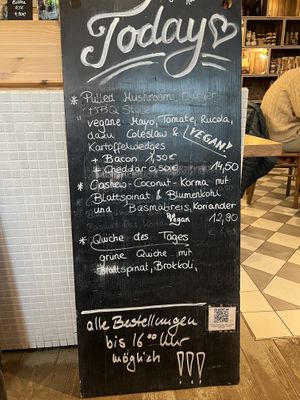 Today
* Pulled Mushroom Burger
BBQ Style
vegane Mayo, Tomate, Rucola,
dazu Coleslaw & VEGAN!
Kartoffelwedges
+ Bacon 1,50€
+ Cheddar 0,50€ 14,50
* Cashew-Coconut-Korma mit
Blattspinat & Blumenkohl
und Basmatireis, Koriander
Vegan 12,90
* Quiche des Tages
grüne Quiche mit
Blattspinat, Brokkoli,
alle Bestellungen
bis 16 00 Uhr
möglich !!!